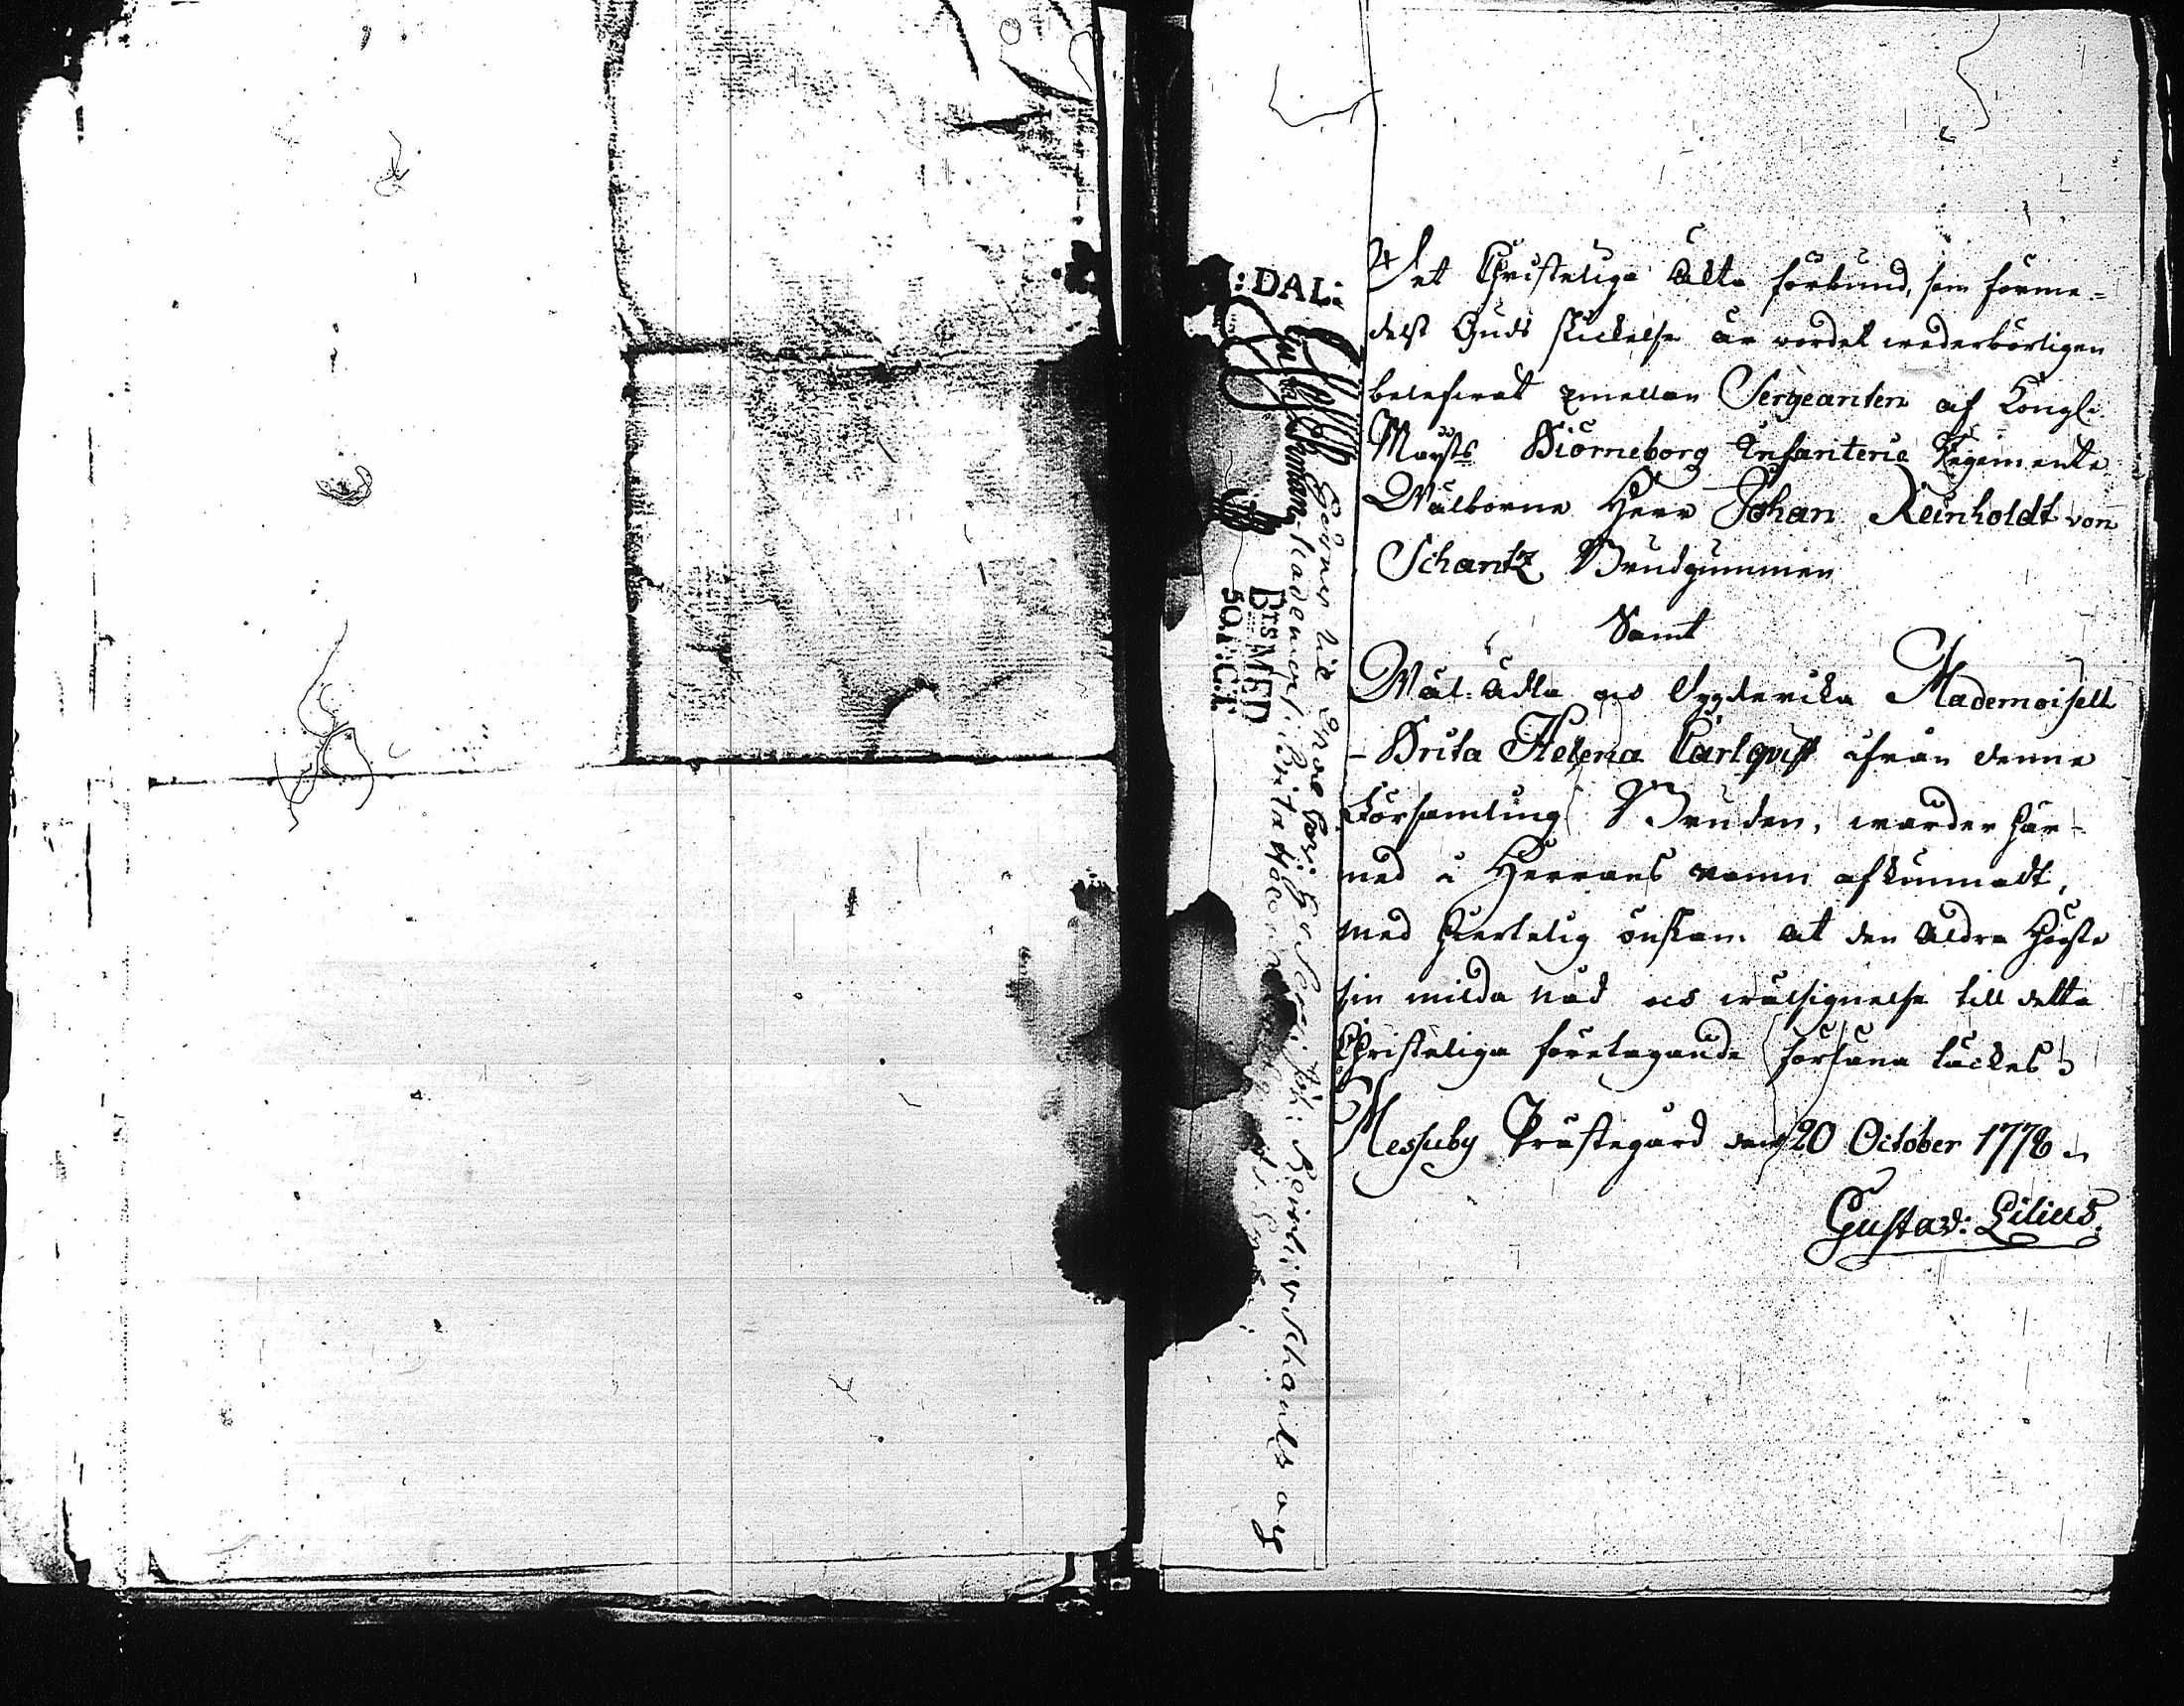 Det Christeliga Ächta förbund, som förme=
delst Guds skickelse är wordet wederbörligen
beslutat emellan Sergeanten af Kongl.
Maysts Biörneborg Infanterie Regemente
Wälborne Herr Johan Reinholdt von
Schantz Brudgummen
Samt
Wäl. Ädla och Dygderika Mademoisell
- Brita Helena Carlqvist ifrån denne
Församling Bruden, warder här=
med i Herrans namn afkunnadt,
med hiertelig önskan at den Aldra Högste
sin milda nåd och wälsignelse till detta
Christeliga företagande förläna täckes
Messuby Prästegård den 20 October 1778
Gustav: Lilius.
:DAL:
Brita
von Schantz
DTS MED